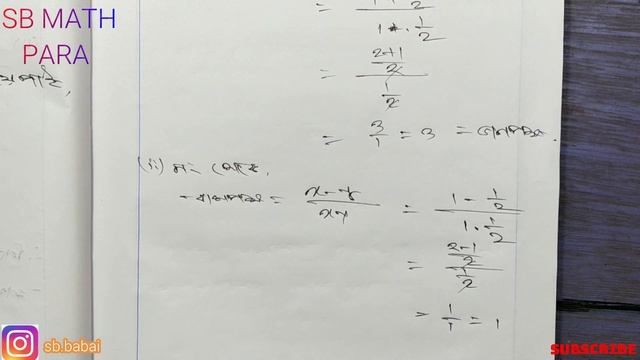 SB MATH
PARA
= (1+1/2)/(1·1/2)
= ((2+1)/2)/(1/2)
= 3/1 = 3 =
(ii)
= (x-y)/(xy) = (1-1/2)/(1·1/2)
= ((2-1)/2)/(1/2)
= 1/1 = 1
sb.babai
SUBSCRIBE